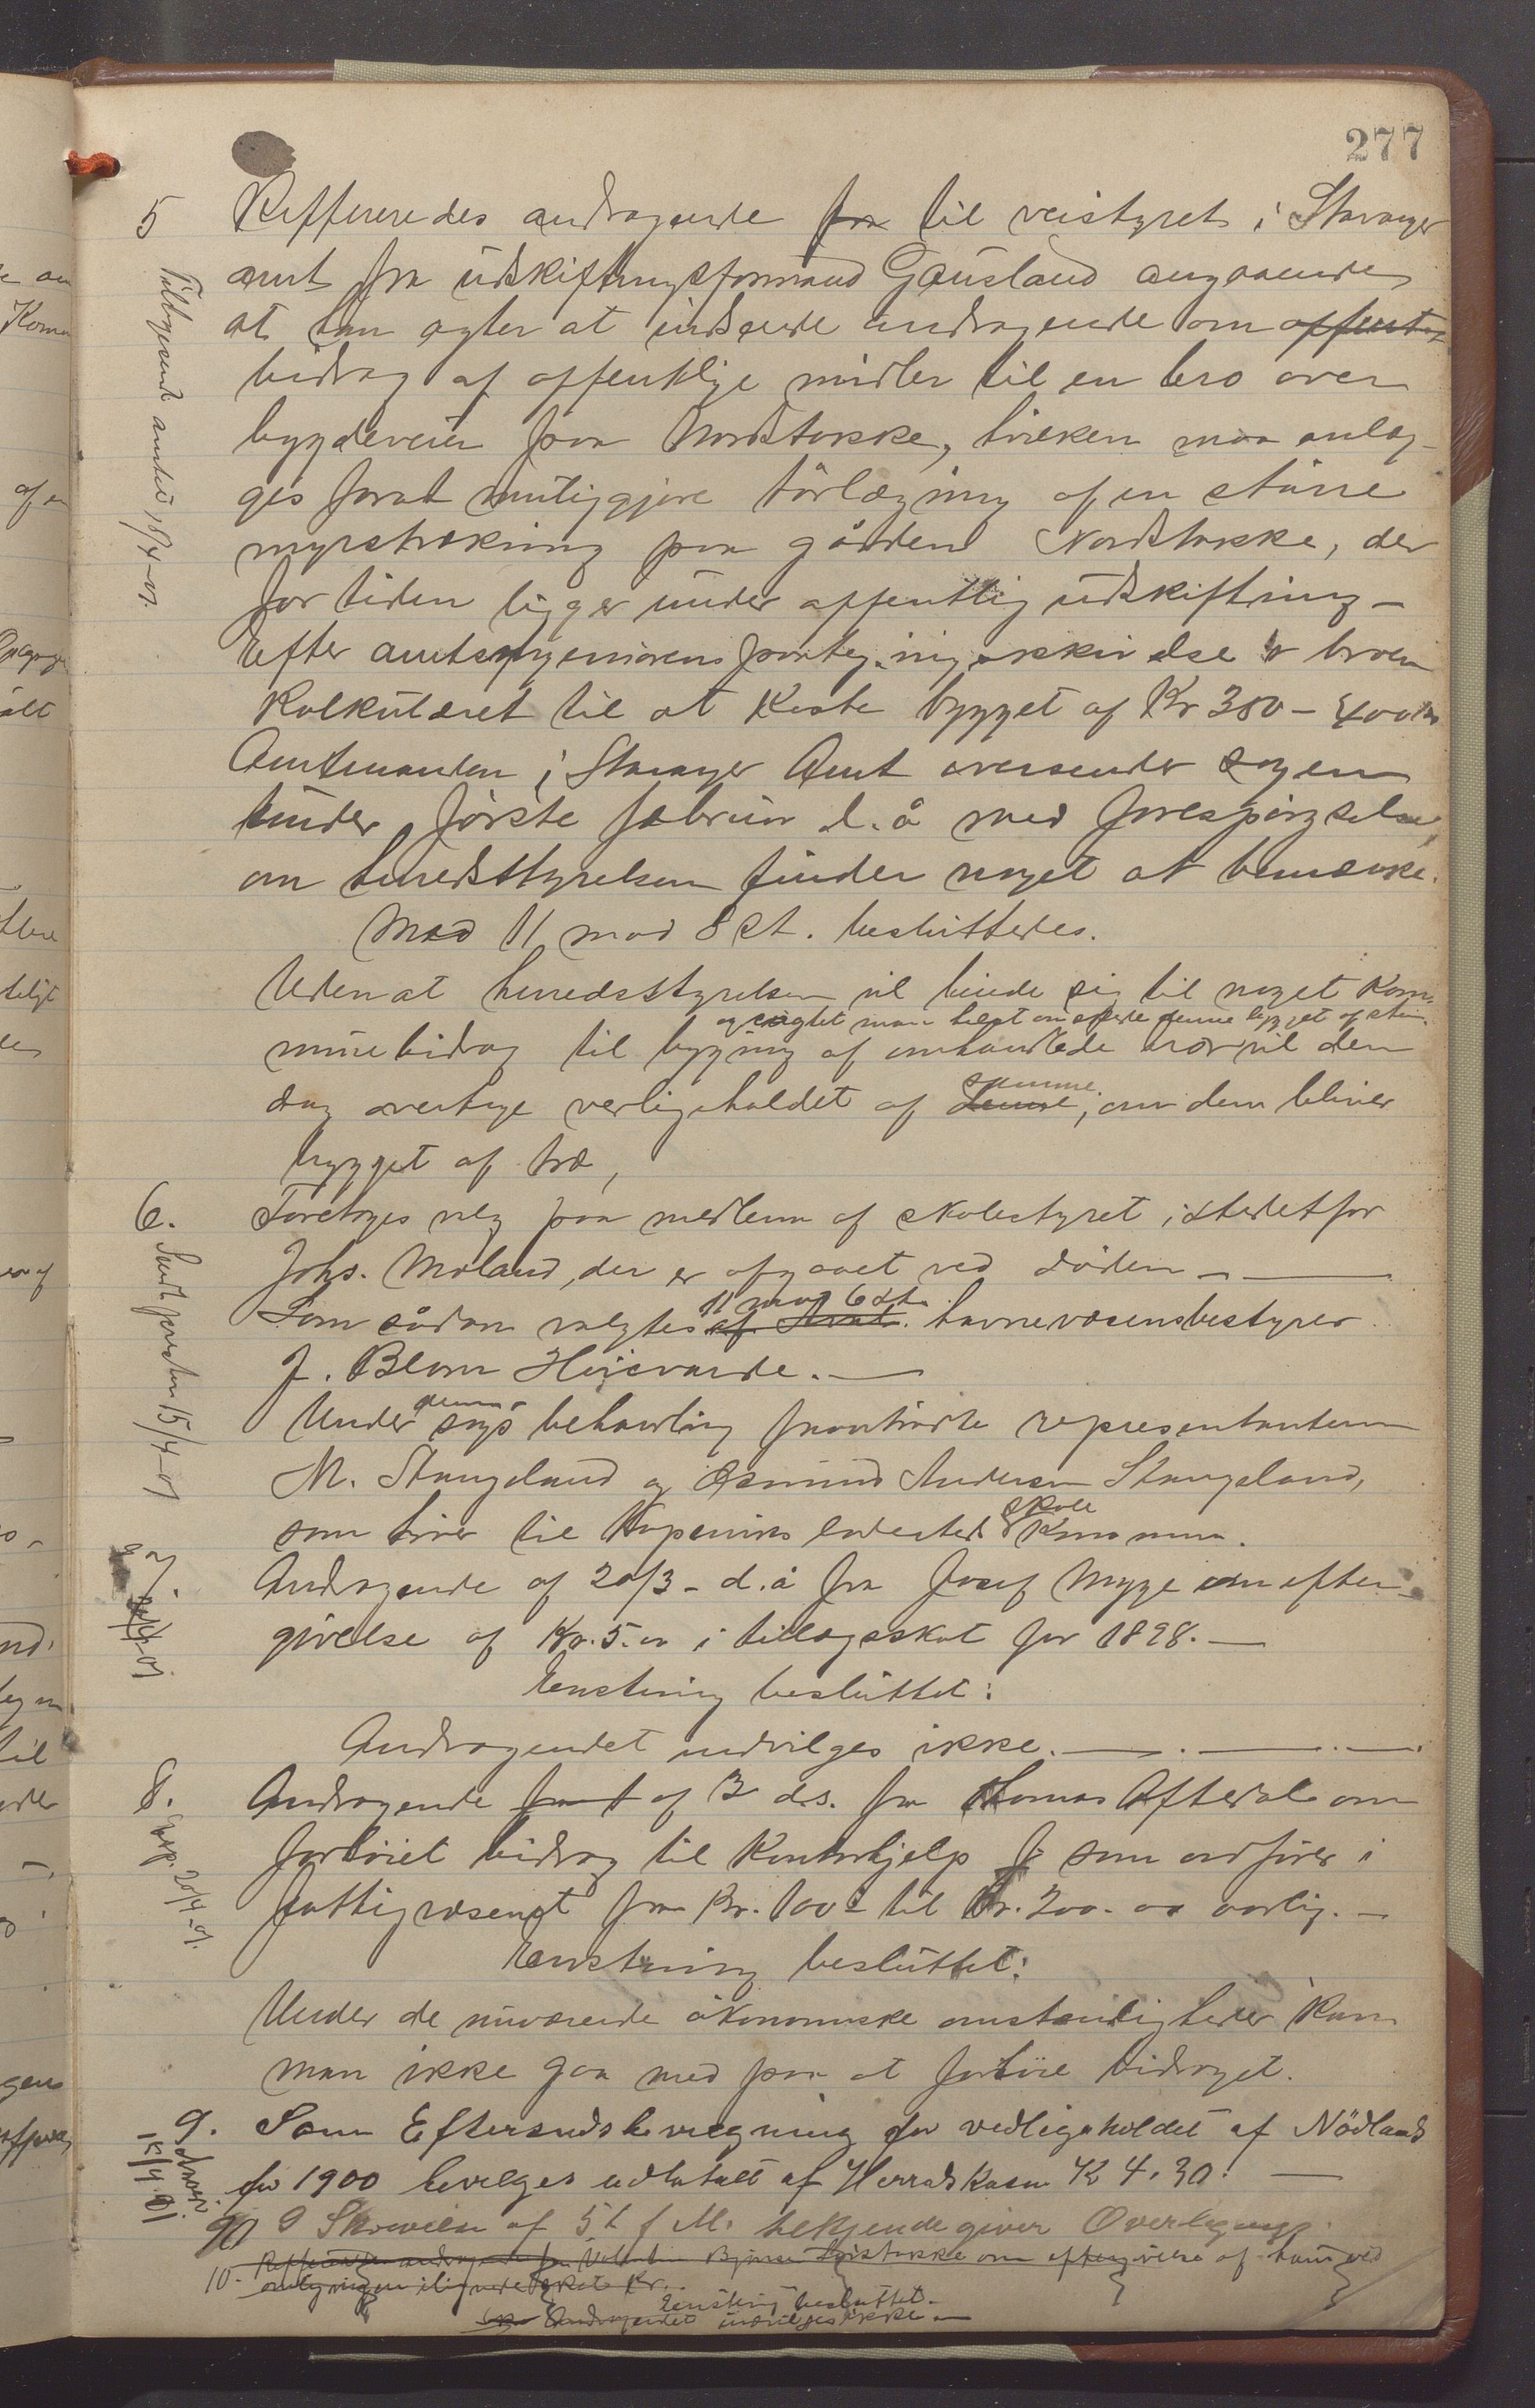 277
5 Reffereredes andragende fra til veistyret i Stavanger
amt fra udskiftningsformand Gausland angaaende
at han agter at indsende andragende om offent-
bidrag af offentlige midler til en bro over
bygdeveien paa Nordstokke, hvilken maa anlæg-
ges forat muliggjøre tørlægning af en større
myrstrækning paa gården Nordstokke, der
for tiden ligger under offentlig udskiftning -
Efter amtsingeniørens paategningsskrivelse er broen
kalkuleret til at koste bygget af Kr 350 - 400
Amtmanden i Stavanger Amt oversender sagen
under første februar d.å med forespørgselse,
om herredsstyrelsen finder noget at bemærke.
Tilbagesendt amtet 18/4-01.
Med 11 mod 8 st. besluttedes.
Uden at herredsstyrelsen vil binde sig til noget kom-
munebidrag til bygning af omhandlede bro vil den
og seigtet man helst ønskede denne bygget af sten
dog overtage vedligeholdet af denne samme, om den bliver
bygget af træ,
6. Foretoges valg paa medlem af skolestyret istedetfor
Johs. Moland, der er afgaaet ved døden -
Som sådan valgtes 11 mod 6 st. havnevæsensbestyrer
J. Blom Høievarde. -
Under denne sags behandling fratrådte representanterne
M. Stangeland og Osmund Andersen Stangeland,
som hører til Kopervik ladested skole kommune.
15/4-01
7. Andragende af 20/3 - d.å fra Josef Mygge om efter-
givelse af Kr. 5.00 i tillægsskat for 1898. -
Enstemig besluttet:
Andragendet indvilges ikke. -
8. Andragende fra af 3 ds. fra Thomas Aftedal om
forhøiet bidrag til Kontorhjelp som ordfører i
fattigvæsenet fra Kr. 100 til Kr. 200.00 aarlig. -
Exp. 20/4-01.
Enstemig besluttet:
Under de nuværende økonomiske omstændigheder kan
man ikke gaa med paa at forhøie bidraget.
9. Som Eftersudsbevregning for vedligeholdet af Nødlands
for 1900 bevilges udbetalt af Herredskasen K 4,30. -
Anvi. 15/4 01
90 9 Skrivelse af 5t f M. bekjendegiver Overlægning
10. Refferertes andragende fra Valentin Bjørnsen om eftergivelse af ham ved
omligningen ilignede skat Kr.
Enstemig besluttet.
Andragendet indvilges ikke -